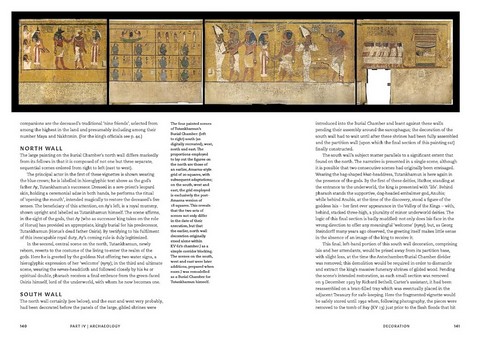 companions are the deceased's traditional 'nine friends', selected from
among the highest in the land and presumably including among their
number Maya and Nakhtmin. (For the king's officials see p.
NORTH WALL
The large painting on the Burial Chamber's north wall differs markedly
from its fellows in that it is composed of not one but three separate,
sequential scenes ordered from right to left (east to west).
The principal actor in the first of these vignettes is shown wearing
the blue crown; he is labelled in hieroglyphic text above as the god's
father Ay, Tutankhamun's successor. Dressed in a sem-priest's leopard
skin, holding a ceremonial adze in both hands, he performs the ritual
of 'opening the mouth', intended magically to restore the deceased's five
senses. The beneficiary of this attention, on Ay's left, is a royal mummy,
shown upright and labelled as Tutankhamun himself. The scene affirms,
in the sight of the gods, that Ay (who as successor king takes on the role
of Horus) has provided an appropriate, kingly burial for his predecessor,
Tutankhamun (Horus's dead father Osiris). By testifying to his fulfilment
of this inescapable royal duty, Ay's coming rule is duly legitimized.
In the second, central scene on the north, Tutankhamun, newly
reborn, reverts to the costume of the living to enter the realm of the
gods. Here he is greeted by the goddess Nut offering two water signs, a
hieroglyphic expression of her 'welcome' (nyny). In the third and ultimate
scene, wearing the nemes-headcloth and followed closely by his ka or
spiritual double, pharaoh receives a final embrace from the green-faced
Osiris himself, lord of the underworld, with whom he now becomes one.
SOUTH WALL
The north wall certainly (see below), and the east and west very probably,
had been decorated before the panels of the large, gilded shrines were
The four painted scenes
of Tutankhamun's
Burial Chamber: (left
to right) south (as
digitally restored), west,
north and east. The
proportions employed
to lay out the figures
on the north are those of
an earlier, Amarna-style
grid of 20 squares, with
subsequent adaptations;
on the south, west and
east, the grid employed
is exclusively the post-
Amarna version of
18 squares. This reveals
that the two sets of
scenes not only differ
in the date of their
execution, but that
the earlier, north wall
decoration originally
stood alone within
KV 62's
simple corridor blocking.
The scenes on the south,
west and east were later
additions, prepared when
room J was remodelled
as a Burial Chamber for
Tutankhamun himself.
introduced into the Burial Chamber and leant against these walls
pending their assembly around the sarcophagus; the decoration of the
south wall had to wait until after these shrines had been fully assembled
and the partition wall (upon which the final section of this painting sat)
finally constructed.
The south wall's subject matter parallels to a significant extent that
found on the north. The narrative is presented in a single scene, although
it is possible that two consecutive scenes had originally been envisaged.
Wearing the bag-shaped khat-headdress, Tutankhamun is here again in
the presence of the gods. By the first of these deities, Hathor, standing at
the entrance to the underworld, the king is presented with 'life'. Behind
pharaoh stands the supportive, dog-headed embalmer god, Anubis;
while behind Anubis, at the time of the discovery, stood a figure of the
goddess Isis – her first ever appearance in the Valley of the Kings – with,
behind, stacked three-high, a plurality of minor underworld deities. The
logic of this final section is badly muddled: not only does Isis face in the
wrong direction to offer any meaningful 'welcome' (nyny), but, as Georg
Steindorff many years ago observed, the greeting itself makes little sense
in the absence of an image of the king to receive it.
This final, left-hand portion of this south wall decoration, comprising
Isis and her attendants, would be prised away from its partition base,
with slight loss, at the time the Antechamber/Burial Chamber divider
was removed; this demolition would be required in order to dismantle
and extract the king's massive funerary shrines of gilded wood. Pending
the scene's intended restoration, as each small section was removed
on 3 December 1923 by Richard Bethell, Carter's assistant, it had been
reassembled on a bran-filled tray which was eventually placed in the
adjacent Treasury for safe-keeping. Here the fragmented vignette would
be safely stored until 1992 when, following photography, the pieces were
removed to the tomb of Bay (KV 13) just prior to the flash floods that hit
140
PART IV | ARCHAEOLOGY
DECORATION
141